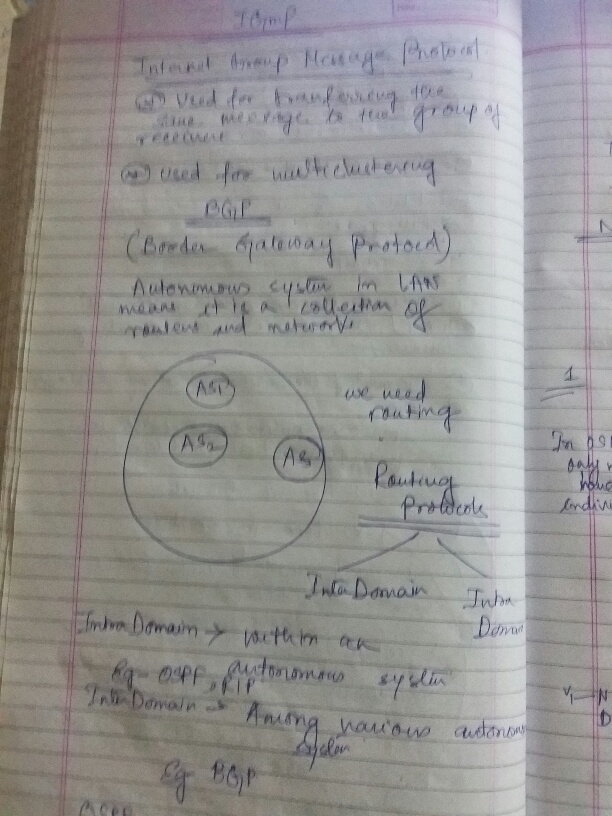 IGMP
Internet Group Message Protocol
Used for transferring the
message to the group of
receivers
used for multiclustering
BGP
(Border Gateway Protocol)
Autonomous system in LANs
means it is a collection of
routers and networks
AS1
we need
routing
AS2
AS
Routing
Protocols
Inter Domain
Intra
Domain
Intra Domain → within an
autonomous system
Eg- OSPF, RIP
Inter Domain → Among various autonomous
system
Eg BGP
1
In OSP
only